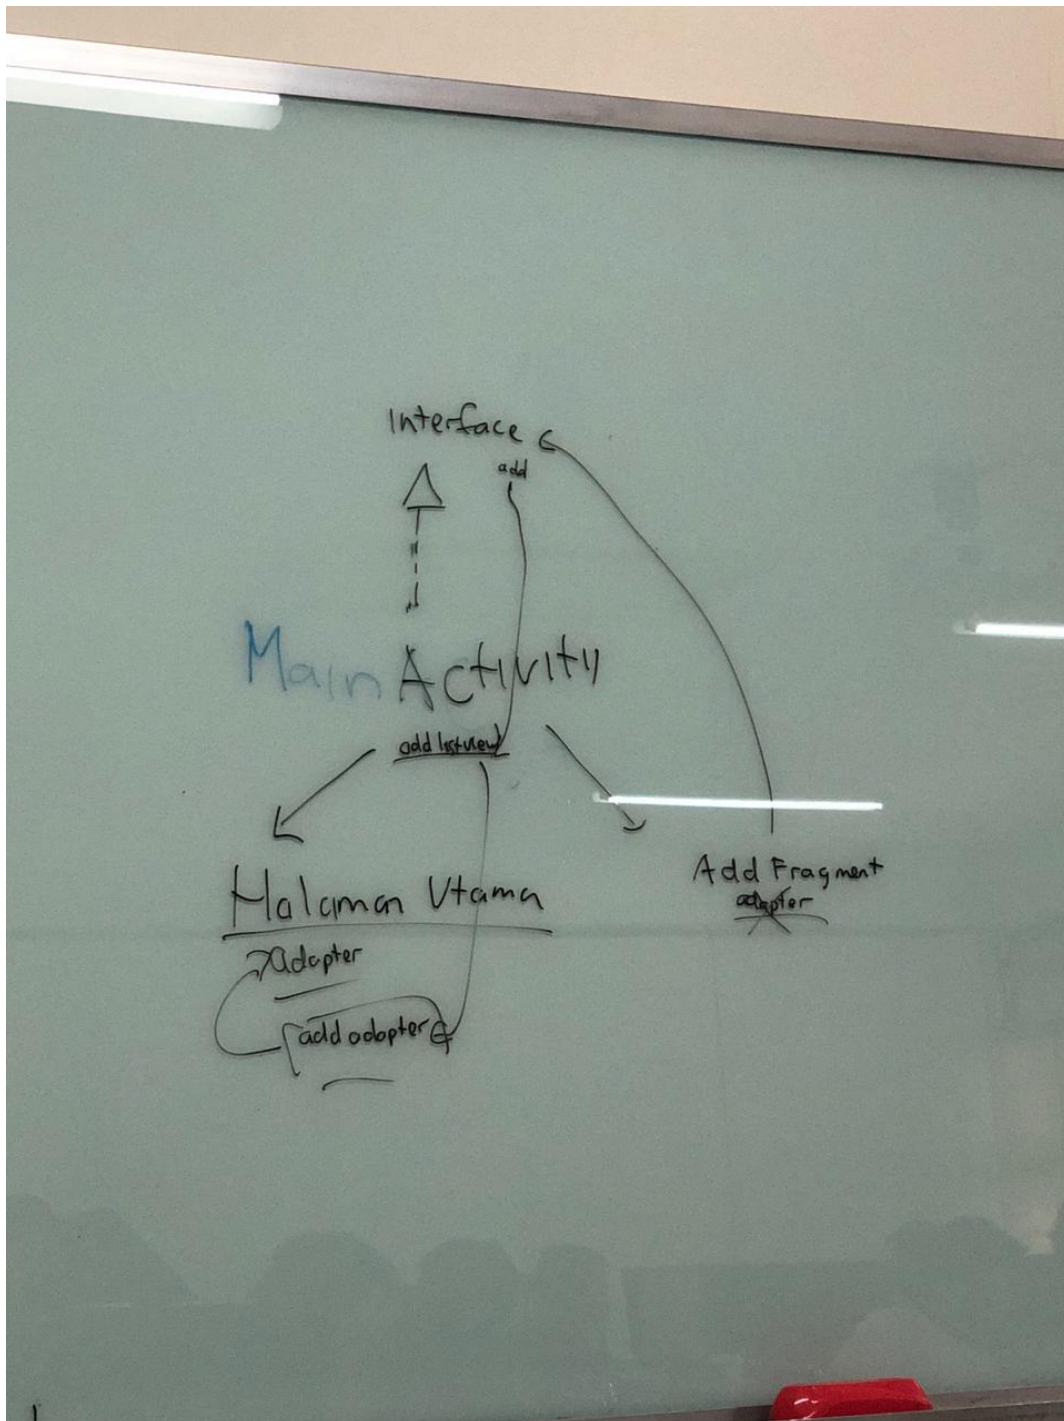 Interface
add
MainActivity
add listview
Halaman Utama
Adapter
add adapter
Add Fragment
adapter